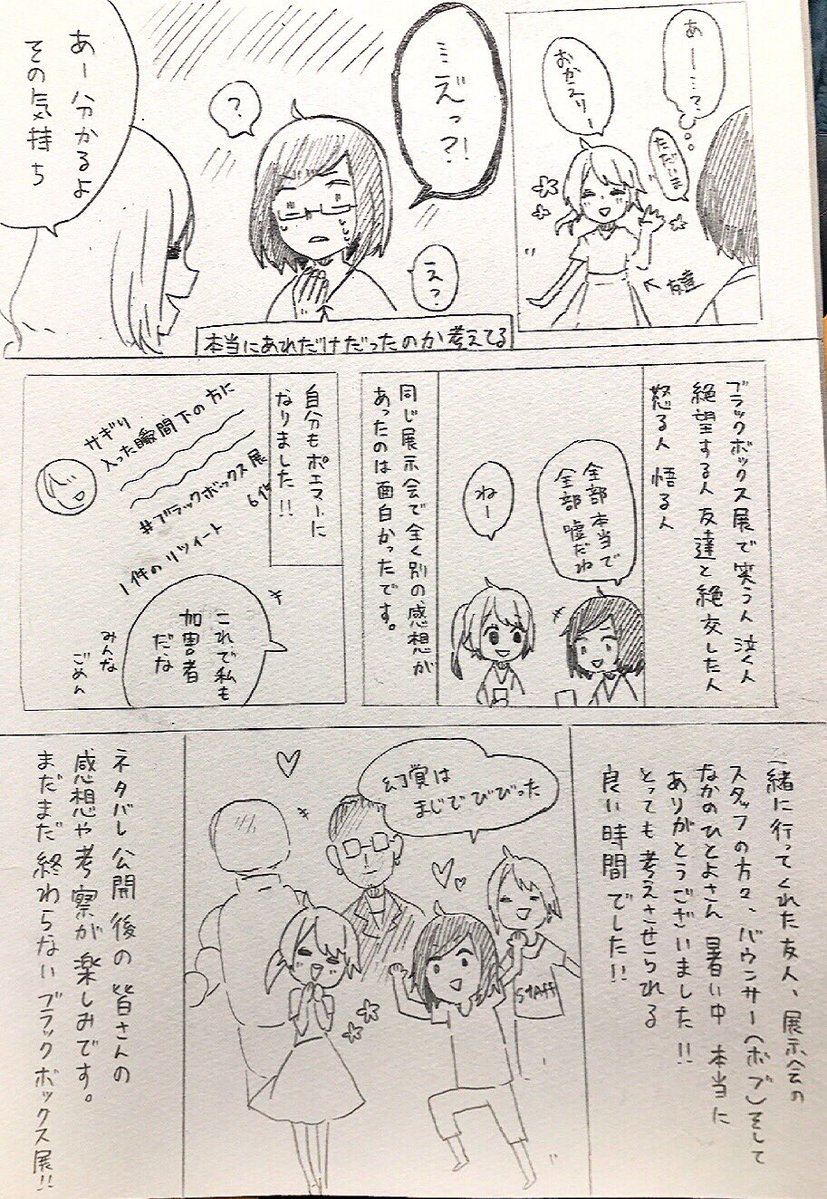 あー…て
おかえりー
ただいま
友達
…えっ?!
?
え?
あー分かるよ
その気持ち
本当にあれだけだったのか考えてる
ブラックボックス展で笑う人 泣く人
絶望する人 友達と絶交した人
怒る人 悟る人
全部本当で
全部嘘だね
ねー
同じ展示会で全く別の感想が
あったのは面白かったです。
自分もポエマーに
なりました!!
サギリ
入った瞬間下の方に
#ブラックボックス展
6件
1件のリツイート
これで私も
加害者
だな
みんな
ごめん
一緒に行ってくれた友人、展示会の
スタッフの方々、バウンサー(ボブ)そして
なかのひとよさん 暑い中 本当に
ありがとうございました!!
とっても考えさせられる
良い時間でした!!
幻覚は
まじでびびった
STAFF
ネタバレ公開後の皆さんの
感想や考察が楽しみです。
まだまだ終わらないブラックボックス展!!